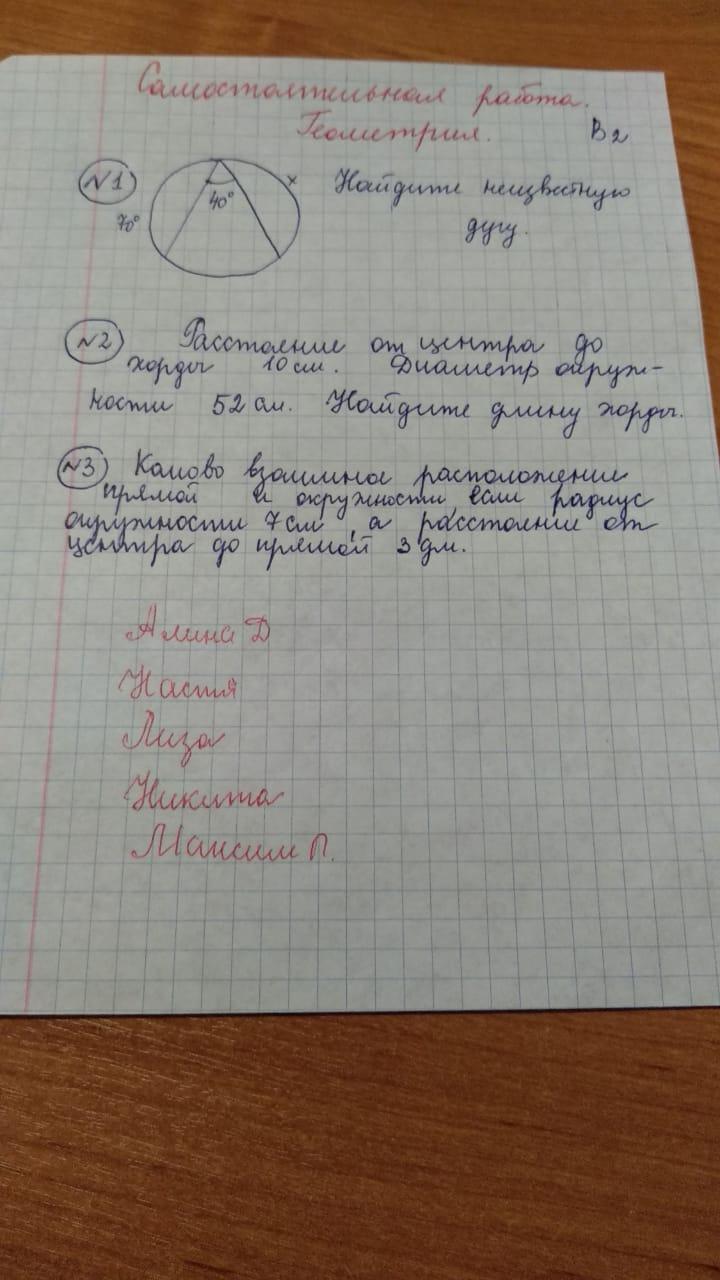 Самостоятельная работа.
Геометрия. В2
№1 70° 40° x Найдите неизвестную
дугу.
№2 Расстояние от центра до
хорды 10 см. Диаметр окруж-
ности 52 см. Найдите длину хорды.
№3 Каково взаимное расположение
прямой и окружности если радиус
окружности 7 см, а расстояние от
центра до прямой 3 дм.
Алина Д
Настя
Лиза
Никита
Максим П.